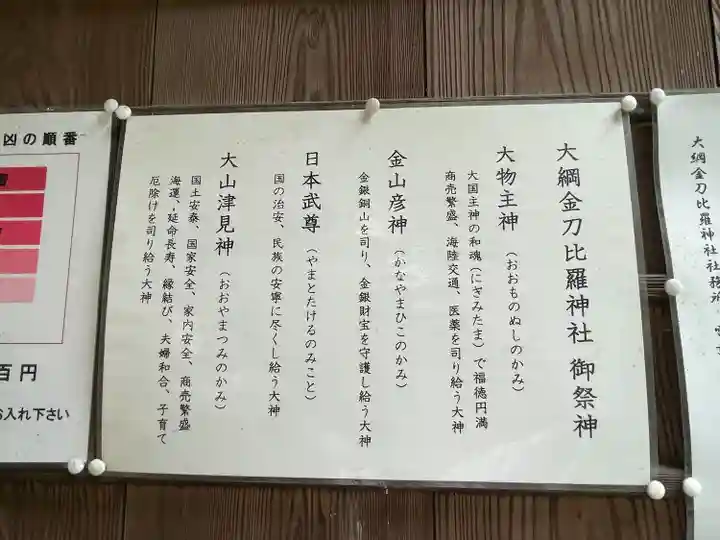 大綱金刀比羅神社 御祭神
大物主神（おおものぬしのかみ）
大国主神の和魂（にぎみたま）で福徳円満
商売繁盛、海陸交通、医薬を司り給う大神
金山彦神（かなやまひこのかみ）
金銀銅山を司り、金銀財宝を守護し給う大神
日本武尊（やまとたけるのみこと）
国の治安、民族の安寧に尽くし給う大神
大山津見神（おおやまつみのかみ）
国土安泰、国家安全、家内安全、商売繁盛
海運、延命長寿、縁結び、夫婦和合、子育て
厄除けを司り給う大神
大綱金刀比羅神社社務所
凶の順番
百円
お入れ下さい